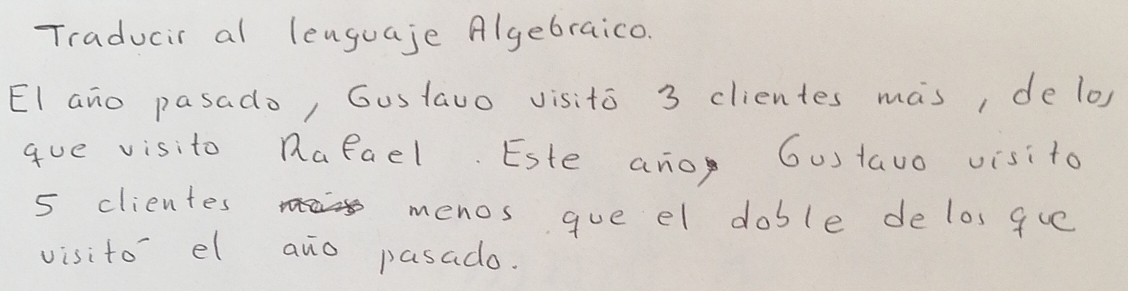 Traducir al lenguaje Algebraico.
El año pasado, Gustavo visitó 3 clientes más, de los
que visito Rafael. Este año, Gustavo visito
5 clientes menos que el doble de los que
visitó el año pasado.